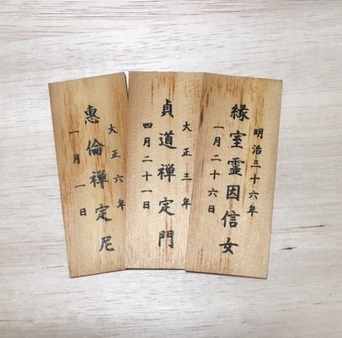 明治三十六年
縁室霊因信女
一月二十六日
大正三年
貞道禅定門
四月二十一日
大正六年
惠倫禅定尼
一月一日